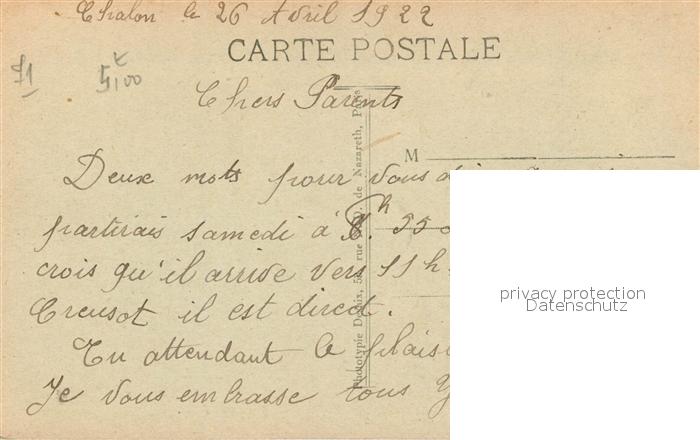 Chalon le 26 Avril 1922
CARTE POSTALE
71
5,00
Chers Parents
M
Deux mots pour vous
partirais samedi à 8h 55
crois qu'il arrive vers 11h
Creusot il est direct.
En attendant le plaisi
Je vous embrasse tous
Phototypie Desaix, rue N. D. de Nazareth, Paris
privacy protection
Datenschutz